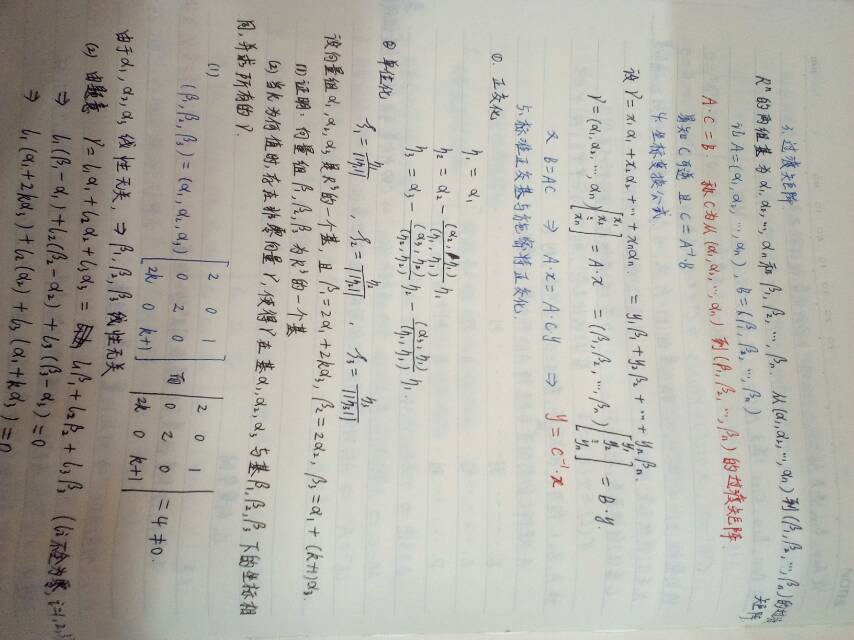 3. 过渡矩阵
Rⁿ的两组基为α₁,α₂,…,αn和β₁,β₂,…,βn. 从(α₁,α₂,…,αn)到(β₁,β₂,…,βn)的
矩阵
记A=(α₁,α₂,…,αn), B=(β₁,β₂,…,βn)
A·C=B. 称C为从(α₁,α₂,…,αn)到(β₁,β₂,…,βn)的过渡矩阵.
易知C可逆且C=A⁻¹·B
4. 坐标变换公式
设γ=x₁α₁+x₂α₂+…+xnαn. =y₁β₁+y₂β₂+…+ynβn.
γ=(α₁,α₂,…,αn)[x₁ x₂ ⋮ xn]=A·x=(β₁,β₂,…,βn)[y₁ y₂ ⋮ yn]=B·y.
又B=AC ⇒ A·x=A·Cy ⇒ y=C⁻¹·x
5. 标准正交基与施密特正交化.
①. 正交化
η₁=α₁
η₂=α₂-(α₂,η₁)/(η₁,η₁) η₁
η₃=α₃-(α₃,η₂)/(η₂,η₂) η₂-(α₃,η₁)/(η₁,η₁) η₁.
② 单位化
ξ₁=η₁/||η₁||, ξ₂=η₂/||η₂||, ξ₃=η₃/||η₃||
设向量组α₁,α₂,α₃是R³的一个基, 且β₁=2α₁+2kα₃, β₂=2α₂, β₃=α₁+(k+1)α₃.
(1)证明:向量组β₁,β₂,β₃为R³的一个基
(2)当k为何值时,存在非零向量γ,使得γ在基α₁,α₂,α₃与基β₁,β₂,β₃下的坐标相
同,并求所有的γ.
(1)
(β₁,β₂,β₃)=(α₁,α₂,α₃)[2 0 1; 0 2 0; 2k 0 k+1] 而 |2 0 1; 0 2 0; 2k 0 k+1|=4≠0.
由于α₁,α₂,α₃线性无关, ⇒β₁,β₂,β₃线性无关
(2) 由题意 γ=l₁α₁+l₂α₂+l₃α₃=l₁β₁+l₂β₂+l₃β₃ (li不全为零, i=1,2,3
⇒ l₁(β₁-α₁)+l₂(β₂-α₂)+l₃(β₃-α₃)=0
⇒ l₁(α₁+2kα₃)+l₂(α₂)+l₃(α₁+kα₃)=0